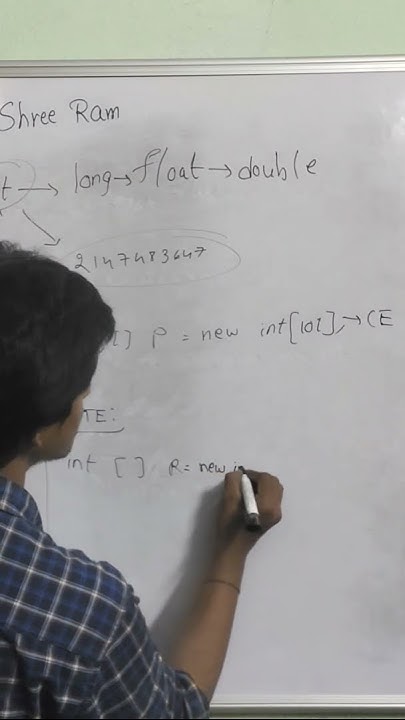 Shree Ram
t → long → float → double
2147483647
[] P = new int[10l]; → CE
TE:
int [] R = new i